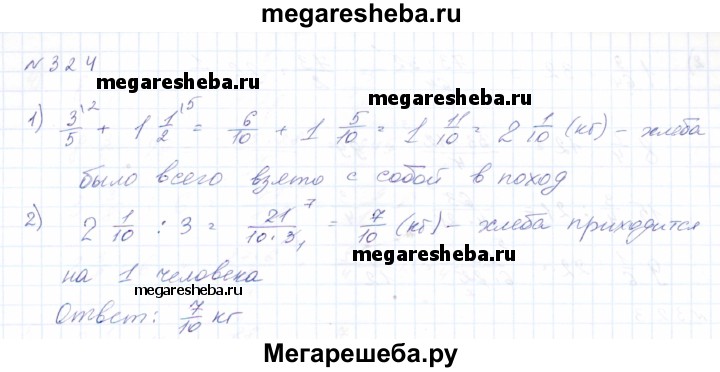 megaresheba.ru
№324
megaresheba.ru megaresheba.ru
1) 3/5 ^(2 + 1 1/2 ^(5 = 6/10 + 1 5/10 = 1 11/10 = 2 1/10 (кг) – хлеба
было всего взято с собой в поход
2) 2 1/10 : 3 = 21 7/10·3 1 = 7/10 (кг) – хлеба приходится
на 1 человека
megaresheba.ru megaresheba.ru
Ответ: 7/10 кг
Мегарешеба.ру